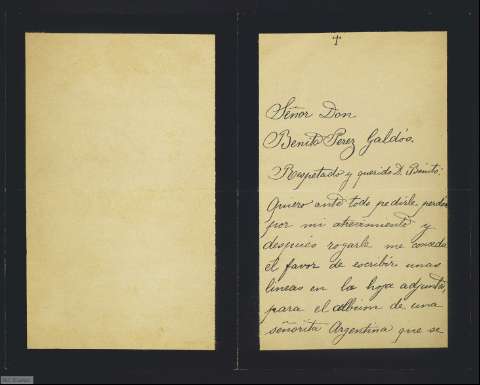 Señor Don
Benito Perez Galdós.
Respetado y querido D. Benito:
Quiero ante todo pedirle perdon
por mi atrevimiento y
despues rogarle me conceda
el favor de escribir unas
lineas en la hoja adjunta,
para el album de una
señorita Argentina que se